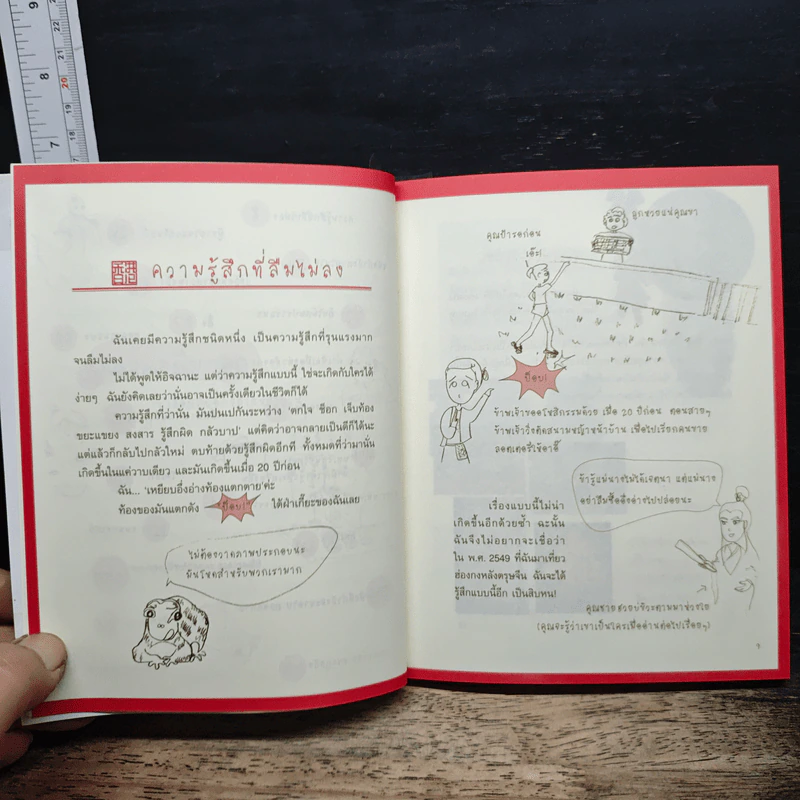 9
8
7
22
21
20
19
18
17
香港 ความรู้สึกที่ลืมไม่ลง
ฉันเคยมีความรู้สึกชนิดหนึ่ง เป็นความรู้สึกที่รุนแรงมาก
จนลืมไม่ลง
ไม่ได้พูดให้อิจฉานะ แต่ว่าความรู้สึกแบบนี้ ใช่จะเกิดกับใครได้
ง่ายๆ ฉันยังคิดเลยว่านั่นอาจเป็นครั้งเดียวในชีวิตก็ได้
ความรู้สึกที่ว่านั่น มันปนเปกันระหว่าง 'ตกใจ ช็อก เจ็บท้อง
ขยะแขยง สงสาร รู้สึกผิด กลัวบาป' แต่คิดว่าอาจกลายเป็นดีก็ได้นะ
แต่แล้วก็กลับไปกลัวใหม่ ตบท้ายด้วยรู้สึกผิดอีกที ทั้งหมดที่ว่ามานั่น
เกิดขึ้นในแค่วาบเดียว และมันเกิดขึ้นเมื่อ 20 ปีก่อน
ฉัน... 'เหยียบอึ่งอ่างท้องแตกตาย'ค่ะ
ท้องของมันแตกดัง "ป๊อบ!" ใต้ฝ่าเกี๊ยะของฉันเลย
ไม่ต้องวาดภาพประกอบนะ
มันโหดสำหรับพวกเรามาก
คุณป้ารอก่อน
ลูกหวยแน่คุณขา
เอ๊ะ!
ป๊อบ!
ข้าพเจ้าขออโหสิกรรมด้วย เมื่อ 20 ปีก่อน ตอนสายๆ
ข้าพเจ้าวิ่งตัดสนามหญ้าหน้าบ้าน เพื่อไปเรียกคนขาย
ลอตเตอรี่ให้อาอี๊
ข้ารู้แม่นางไม่ได้เจตนา แต่แม่นาง
อย่าลืมซื้ออึ่งอ่างไปปล่อยนะ
เรื่องแบบนี้ไม่น่า
เกิดขึ้นอีกด้วยซ้ำ ฉะนั้น
ฉันจึงไม่อยากจะเชื่อว่า
ใน พ.ศ. 2549 ที่ฉันมาเที่ยว
ฮ่องกงหลังตรุษจีน ฉันจะได้
รู้สึกแบบนี้อีก เป็นสิบหน!
คุณชาย
(คุณจะรู้ว่าเขาเป็นใครเมื่ออ่านต่อไปเรื่อยๆ)